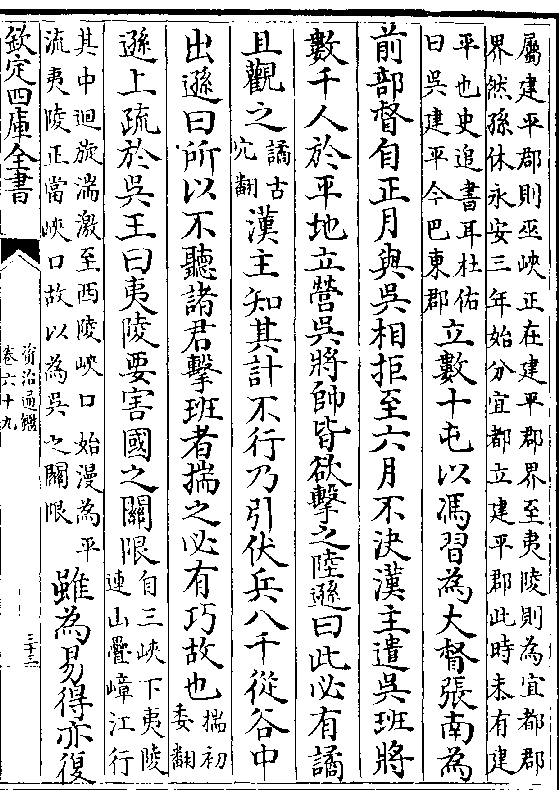 屬建平郡則巫峽正在建平郡界至夷陵則為宜都郡
界然孫休永安三年始分宜都立建平郡此時未有建
平也史追書耳杜佑
曰吳建平今巴東郡
立數十屯以馮習為大督張南為
前部督自正月與吳相拒至六月不決漢主遣吳班將
數千人於平地立營吳將帥皆欲擊之陸遜曰此必有譎
且觀之
譎古
穴翻
漢主知其計不行乃引伏兵八千從谷中
出遜曰所以不聽諸君擊班者揣之必有巧故也
揣初
委翻
遜上疏於吳王曰夷陵要害國之關限
自三峽下夷陵
連山疊嶂江行
其中迴旋湍激至西陵峽口始漫為平
流夷陵正當峽口故以為吳之關限
雖為易得亦復
欽定四庫全書
資治通鑑
卷六十九
三十三